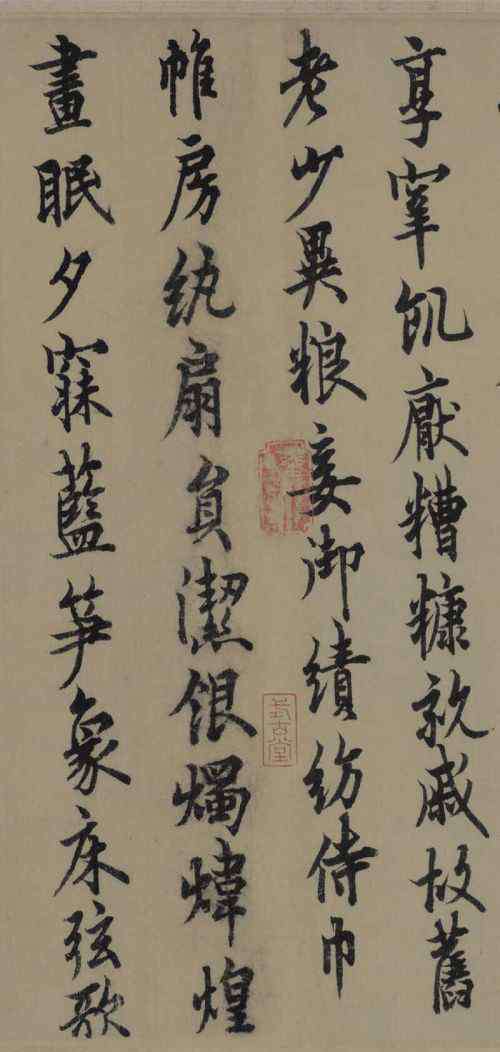 享宰飢厭糟糠親戚故舊
老少異粮妾御績紡侍巾
帷房紈扇員潔銀燭煒煌
晝眠夕寐藍笋象床弦歌
式古堂